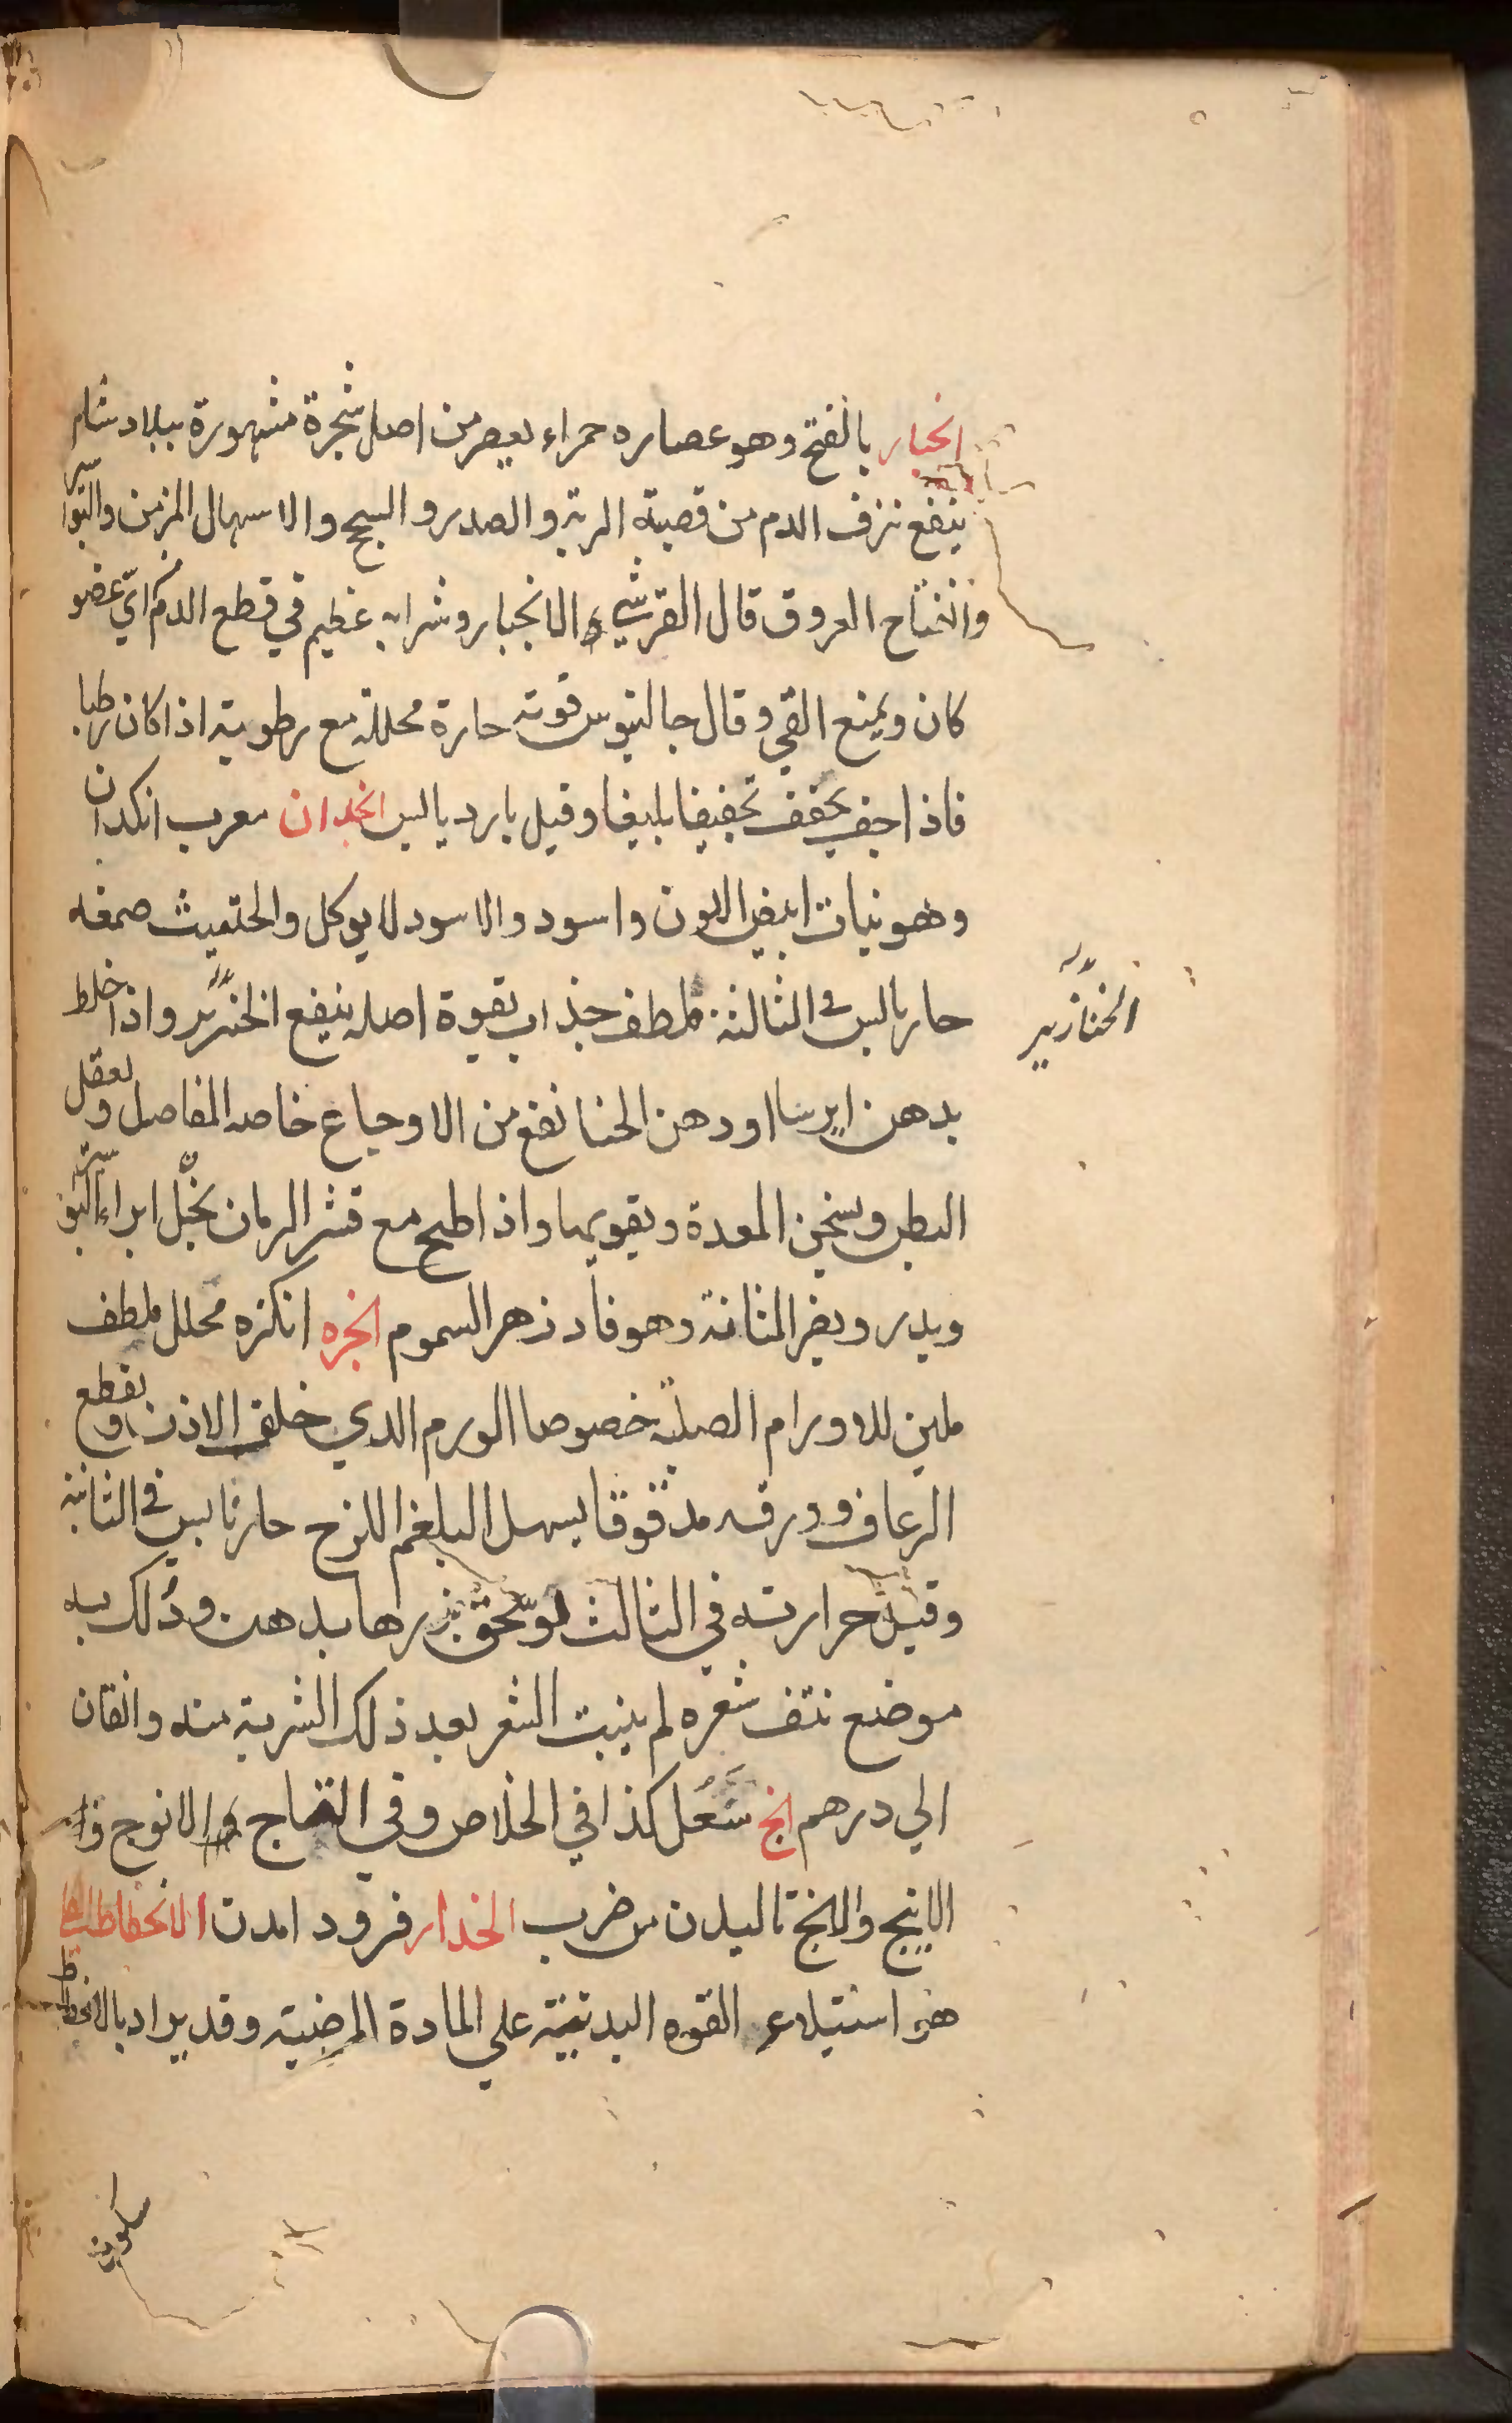 انجبار بالفتح وهو عصاره حمراء يعصر من اصل شجرة مشهورة ببلاد شام
ينفع نزف الدم من قصبة الرية والصدر و السحج والاسهال المزمن والبواسير
وانفتاح العروق قال القرشي الانجبار وشرابه عظيم في قطع الدم من ايّ عضو
كان ويمنع القي وقال جالينوس قوته حارة محللة مع رطوبته اذا كان رطبا
فاذا جف يجفف تجفيفا بليغا وقيل بارد يابس انجدان معرب انكدان
وهو نبات ابيض اللون واسود والاسود لا يوكل والحلتيث صمغه
حار يابس في الثالثة ملطف جذاب بقوة اصله ينفع الخنازير واذا خلط
الخنازير
بدهن ايرسا او دهن الحنا نفع من الاوجاع خاصه المفاصل ويعقل
البطن ويسخن المعدة ويقويها واذا طبخ مع قشر الرمان بخل ابراء البواسير
ويدر ويضر المثانة وهو فادزهر السموم انجره انكزه محلل ملطف
ملين للاورام الصلبة خصوصا الورم الذي خلف الاذن ويقطع
الرعاف وورقه مدقوقا يسهل البلغم اللزج حار يابس في الثانية
وقيل حرارته في الثالث لو سحق بزرها بدهن ودُلك به
موضع نتف شعره لم ينبت الشعر بعد ذلك الشربة منه دانقان
الي درهم انج سَعُل كذا في الخلاص وفي التاج الانوج
الانيج والانج تاليدن من ضرب انحدار فرود امدن الانحطاط
هو استيلاء القوه البدنية علي المادة المرضية وقد يراد بالانحطاط
سكون